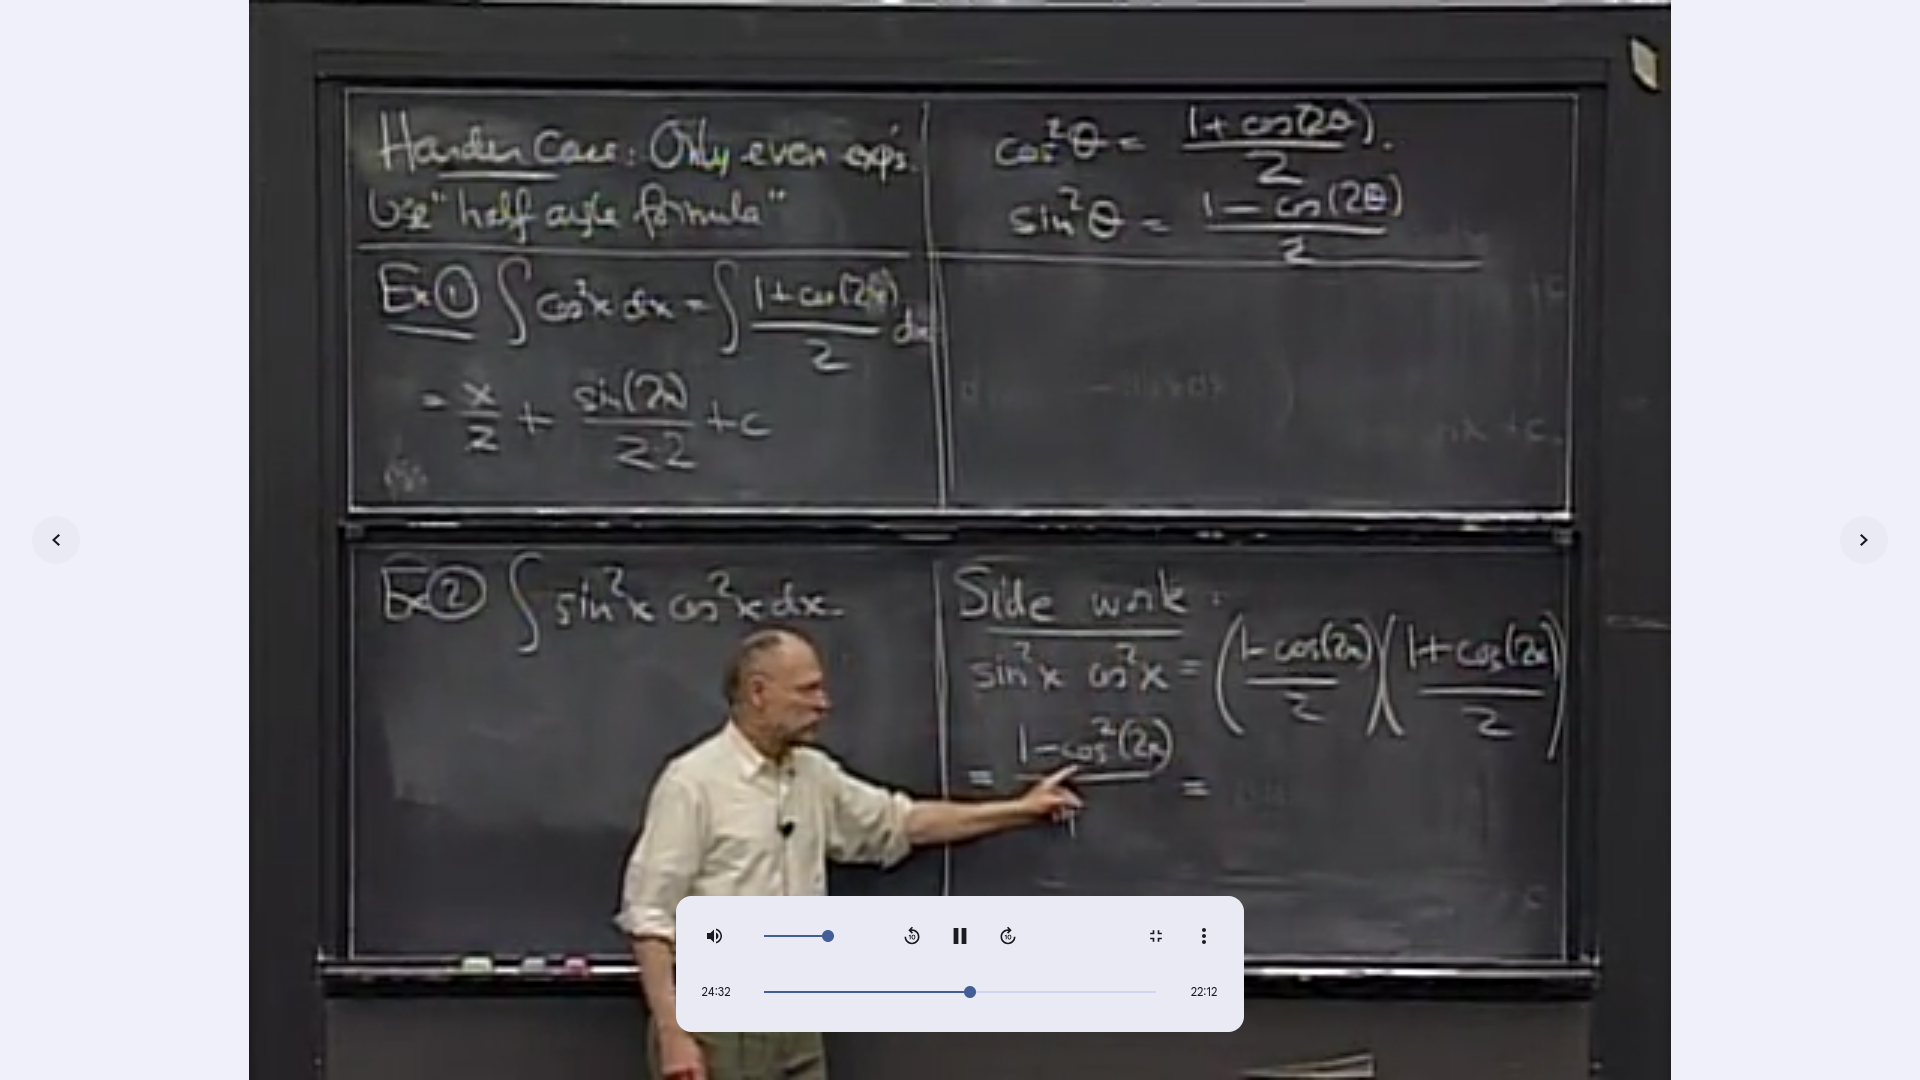 Harder Case: Only even exp's.
Use "half angle formula"
cos²θ = (1 + cos(2θ))/2.
sin²θ = (1 − cos(2θ))/2
Ex① ∫ cos²x dx = ∫ (1 + cos(2x))/2 dx
= x/2 + sin(2x)/(2·2) + c
Ex② ∫ sin²x cos²x dx.
Side work:
sin²x cos²x = ((1 − cos(2x))/2)((1 + cos(2x))/2)
= (1 − cos²(2x))/4 =
24:32
22:12